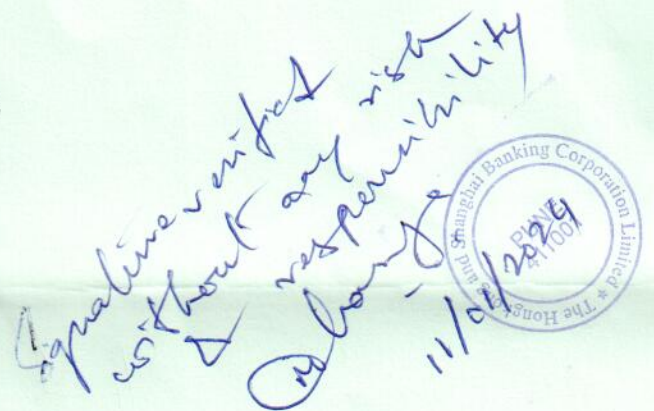 Signature verified
without any risk
& responsibility
11/01/2024
The Hongkong and Shanghai Banking Corporation Limited *
PUNE
411001